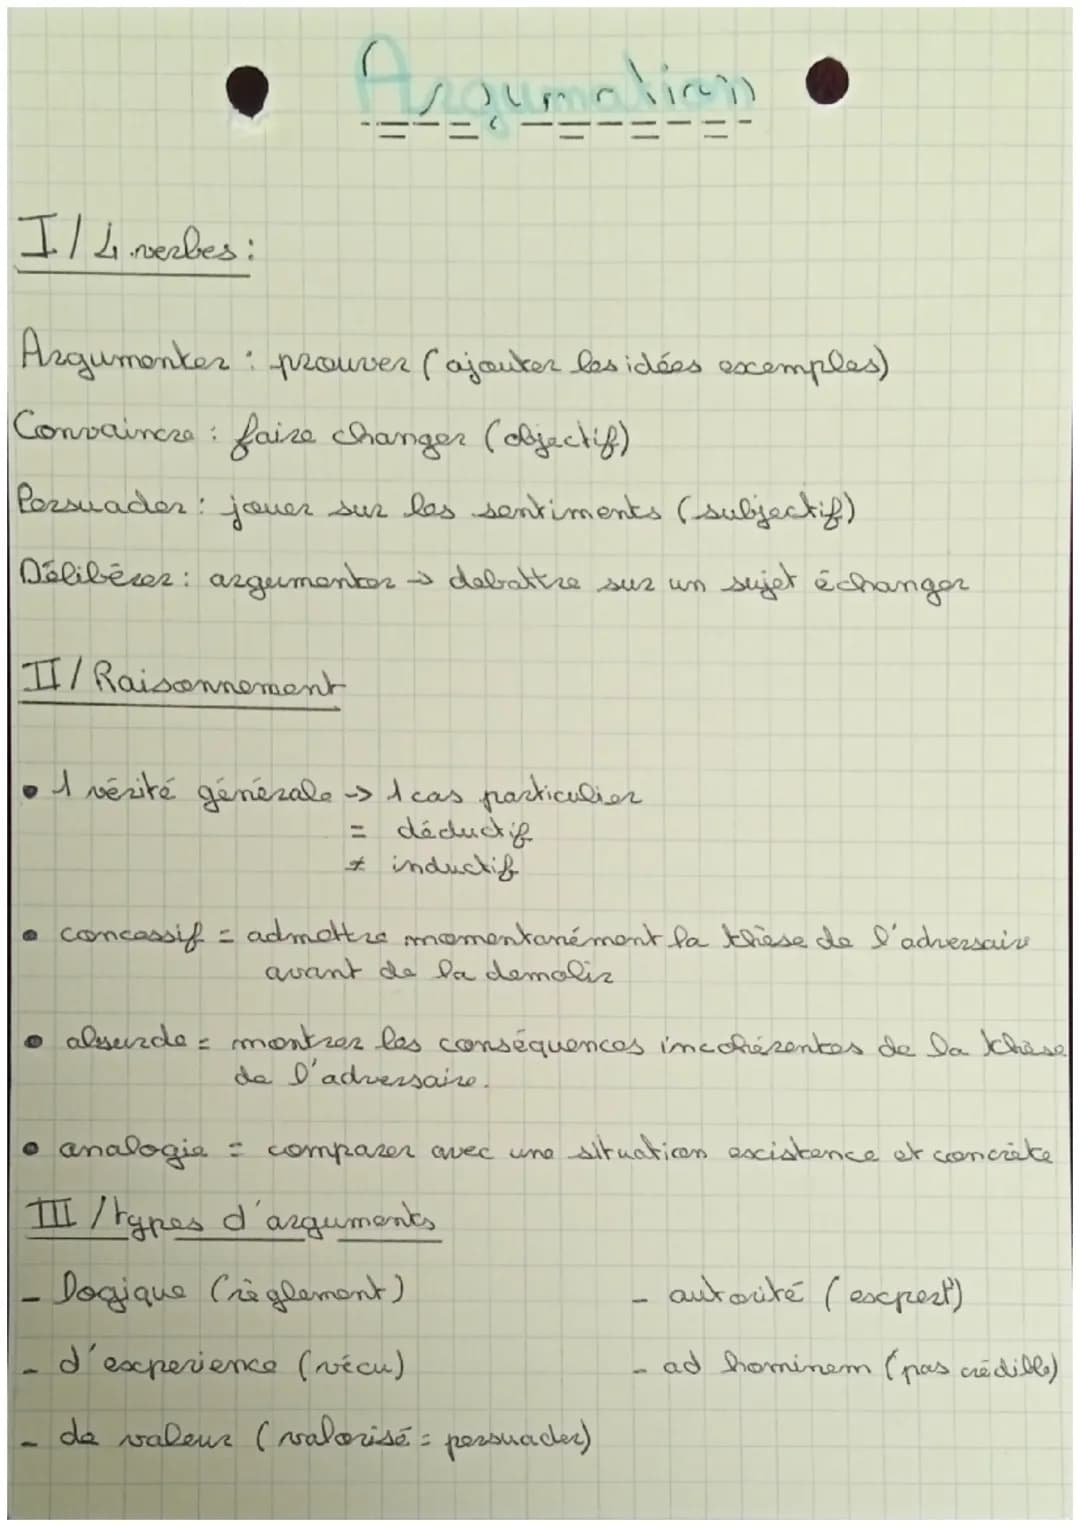 Argumation
I/ 4 verbes :
Argumenter : prouver (ajouter les idées exemples)
Convaincre : faire changer (objectif)
Persuader : jouer sur les sentiments (subjectif)
Délibérer : argumenter → debattre sur un sujet échanger
II/ Raisonnement
• 1 vérité générale → 1 cas particulier
= déductif
≠ inductif
• concessif = admettre momentanément la thèse de l'adversaire
avant de la demolir
• absurde = montrer les conséquences incohérentes de la thèse
de l'adversaire.
• analogie = comparer avec une situation existence et concrète
III / types d'arguments
- logique (règlement)
- autorité (expert)
- d'experience (vécu)
- ad hominem (pas crédible)
- de valeur (valorisé = persuader)